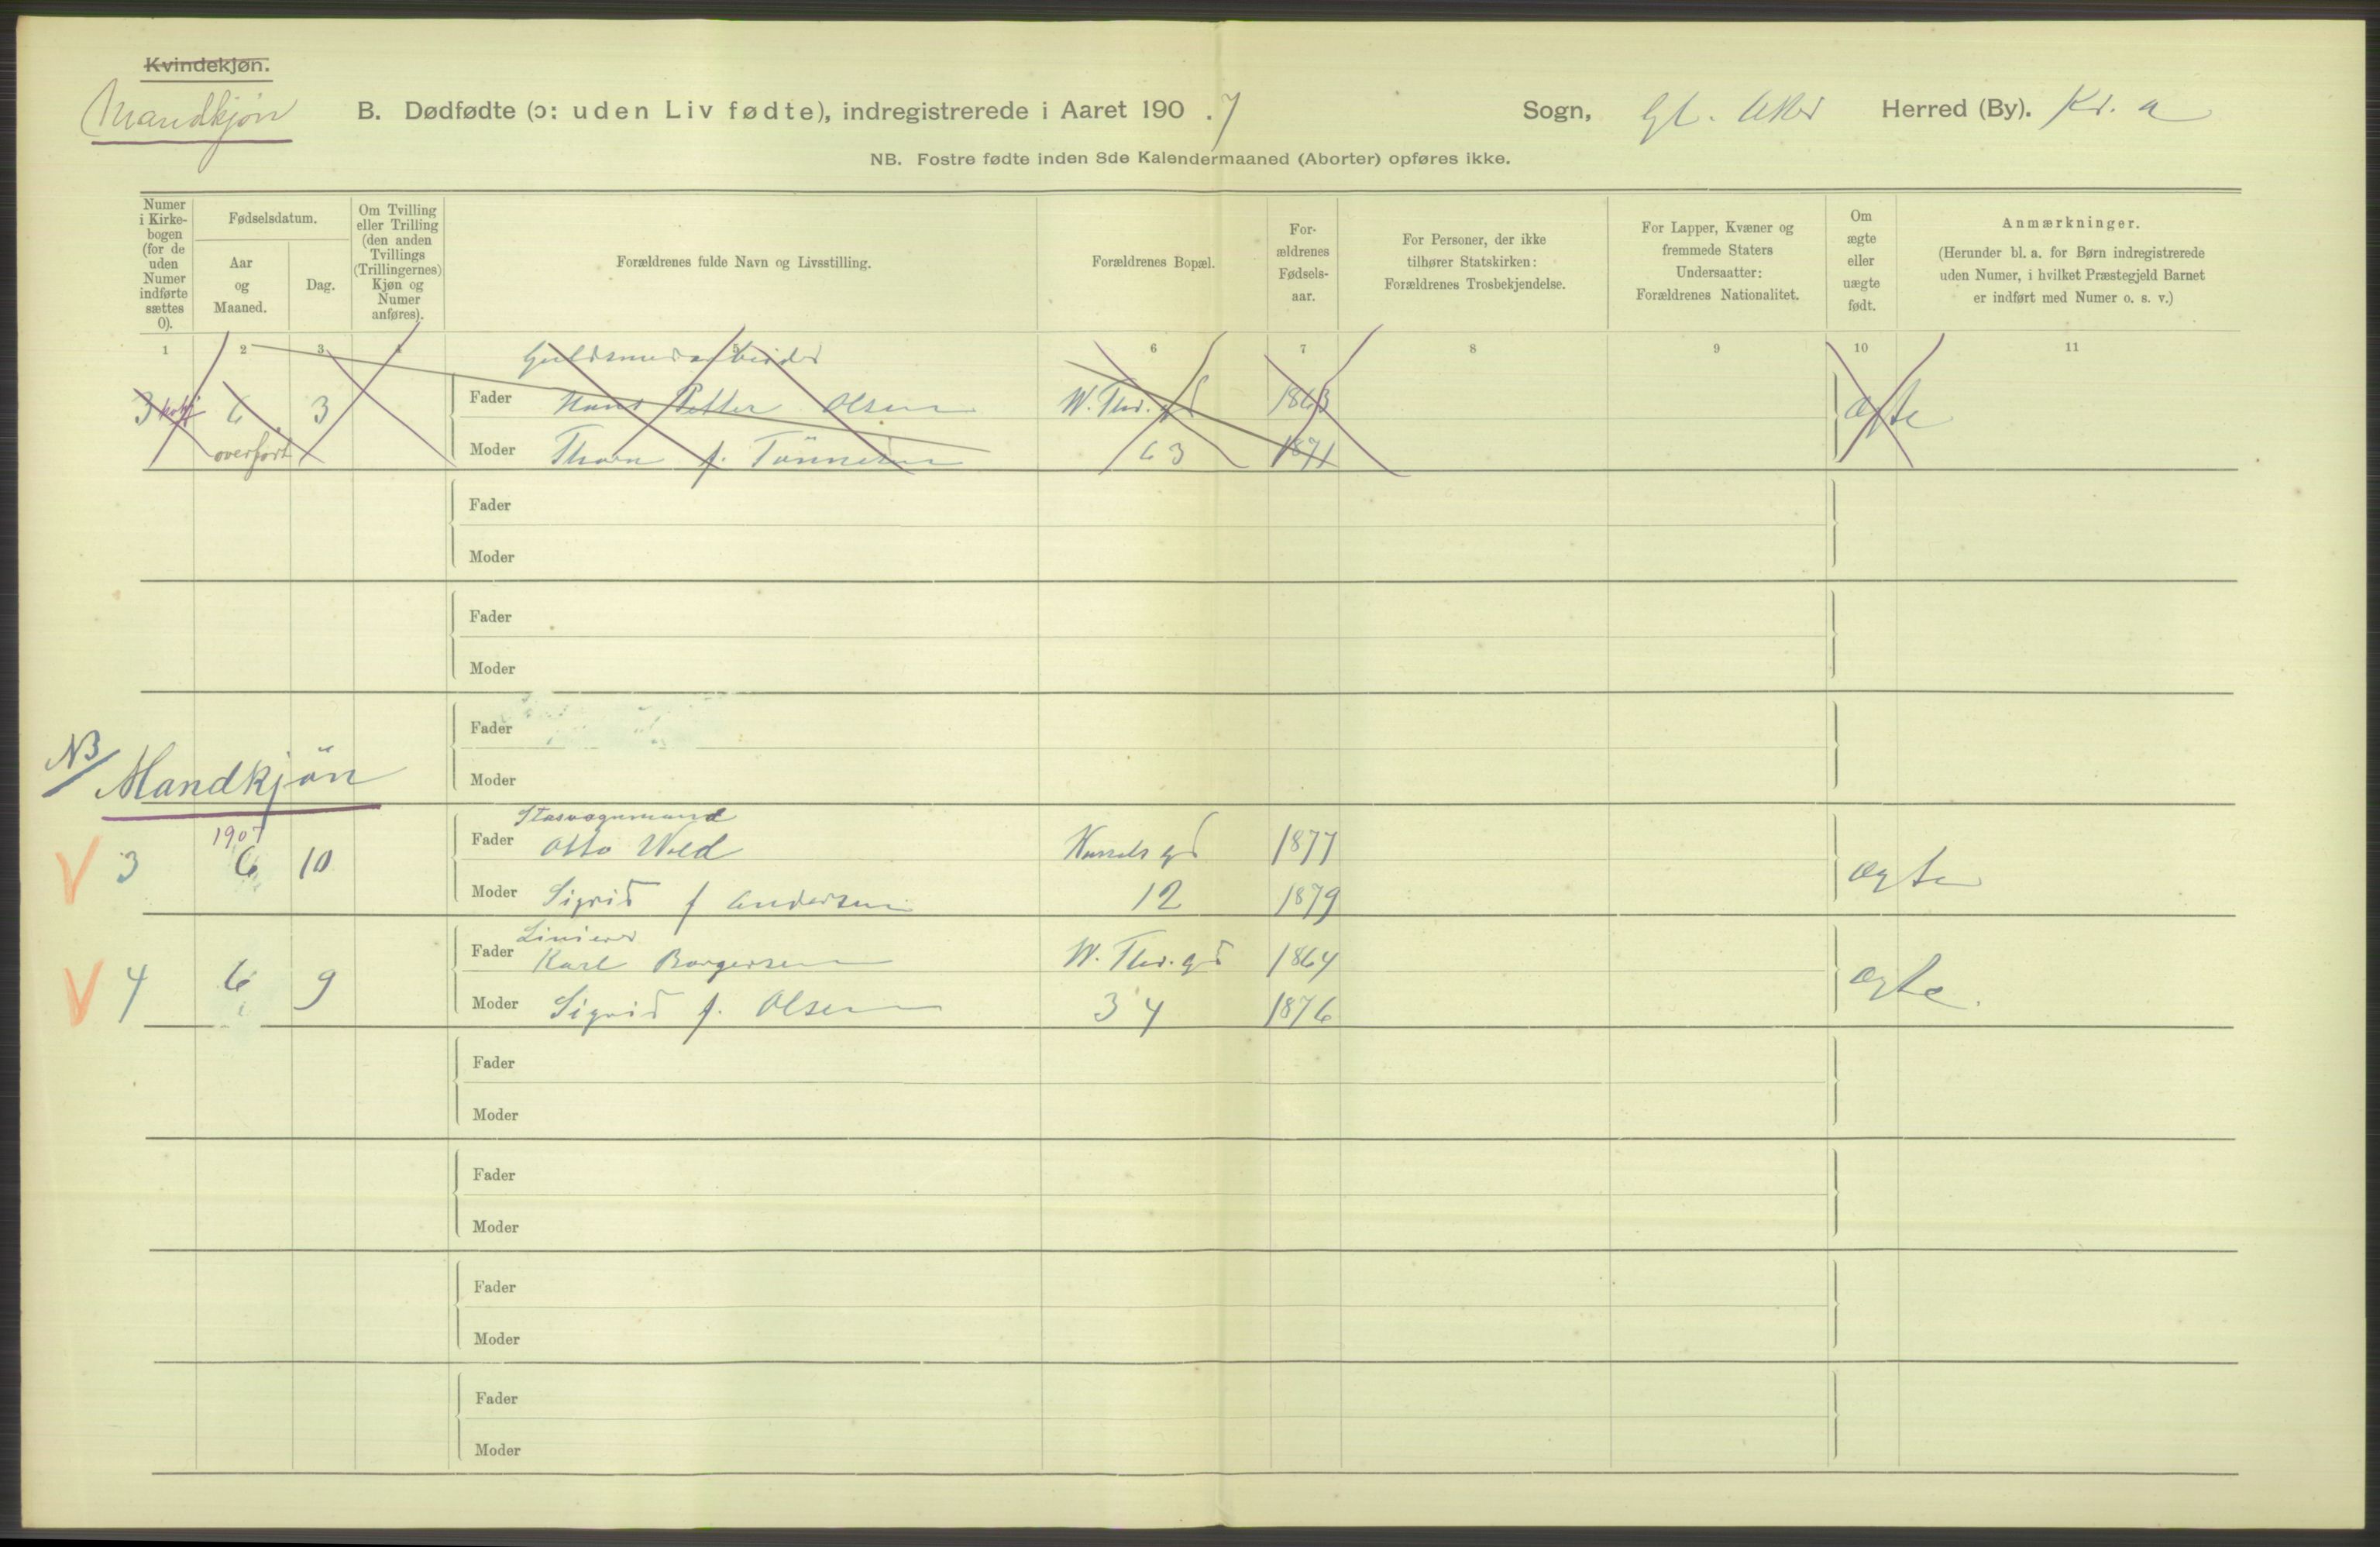 Kvindekjøn.
Mandkjøn
B. Dødfødte (ɔ: uden Liv fødte), indregistrerede i Aaret 190 . 7 Sogn, Gl. Aker Herred (By). Kr. a
NB. Fostre fødte inden 8de Kalendermaaned (Aborter) opføres ikke.
Numer i Kirke-bogen (for de uden Numer indførte sættes 0).
Fødselsdatum.
Aar og Maaned.
Dag.
Om Tvilling eller Trilling (den anden Tvillings (Trillingernes) Kjøn og Numer anføres).
Forældrenes fulde Navn og Livsstilling.
Forældrenes Bopæl.
For-ældrenes Fødsels-aar.
For Personer, der ikke tilhører Statskirken: Forældrenes Trosbekjendelse.
For Lapper, Kvæner og fremmede Staters Undersaatter: Forældrenes Nationalitet.
Om ægte eller uægte født.
Anmærkninger.
(Herunder bl. a. for Børn indregistrerede uden Numer, i hvilket Præstegjeld Barnet er indført med Numer o. s. v.)
1 2 3 4 5 6 7 8 9 10 11
Guldsmedarbeider
3 6 3 Fader Hans Petter Olsen W. Thr. gd 1863 ægte
overført Moder Thora f. Tönnesen 63 1871
Fader
Moder
Fader
Moder
Fader
NB/ Mandkjön
Moder
1907 Fader Otto Wold 1877
V 3 6 10 ægte
Moder Sigrid f Andersen 12 1879
Linierer
Fader Karl Borgersen W. Thr. gd 1864
V 4 6 9 ægte.
Moder Sigrid f. Olsen 34 1876
Fader
Moder
Fader
Moder
Fader
Moder
Fader
Moder